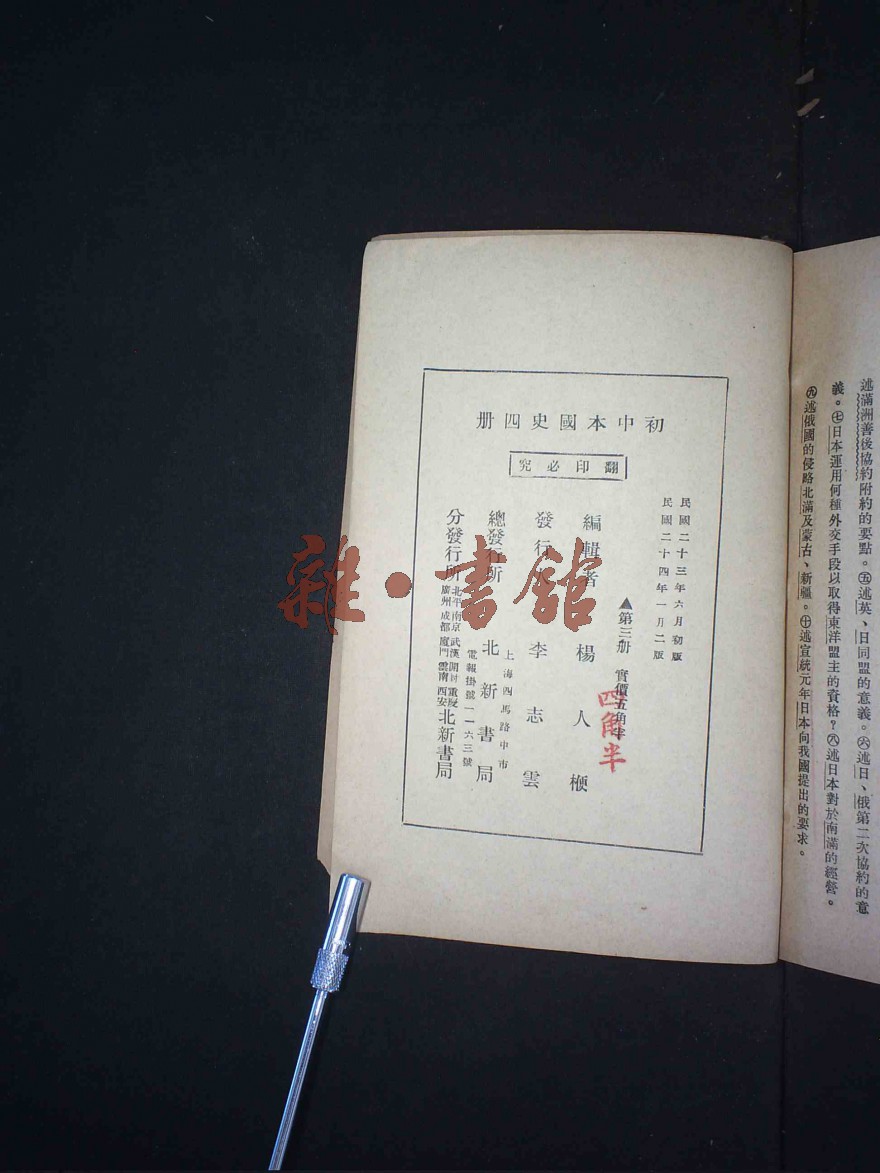 述滿洲善後協約附約的要點。㊄述英、日同盟的意義。㊅述日、俄第二次協約的意
義。㊆日本運用何種外交手段以取得東洋盟主的資格？㊇述日本對於南滿的經營。
㊈述俄國的侵略北滿及蒙古、新疆。㊉述宣統元年日本向我國提出的要求。
初中本國史四册
翻印必究
民國二十三年六月初版
民國二十四年一月二版
▲第三册 實價五角
四角半
編輯者 楊人楩
發行 李志雲
上海四馬路中市
總發行所 北新書局
電報掛號一一六三號
北平 南京 武漢 開封 重慶
廣州 成都 廈門 雲南 西安
分發行所 北新書局
雜·書館